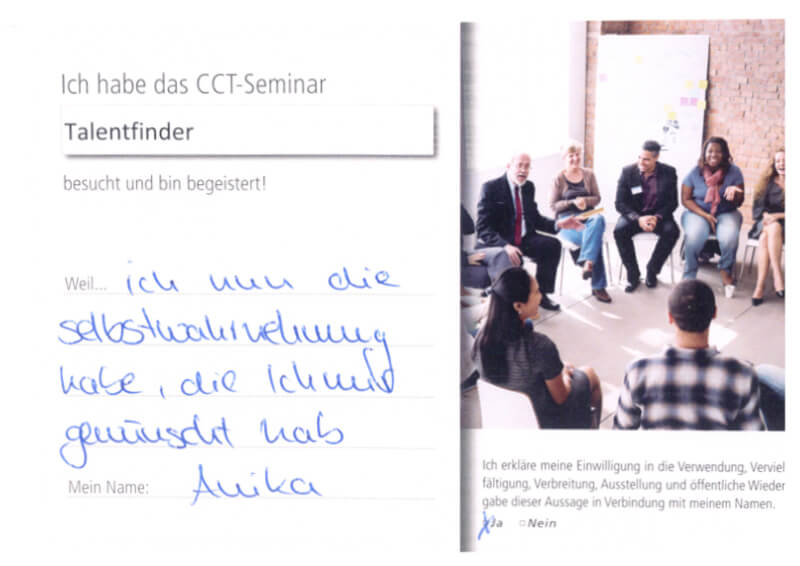 Ich habe das CCT-Seminar
Talentfinder
besucht und bin begeistert!
Weil... ich nun die
selbstwahrnehmung
habe, die Ich mir
gewünscht hab
Mein Name: Anika
Ich erkläre meine Einwilligung in die Verwendung, Verviel
fältigung, Verbreitung, Ausstellung und öffentliche Wieder
gabe dieser Aussage in Verbindung mit meinem Namen.
Ja Nein